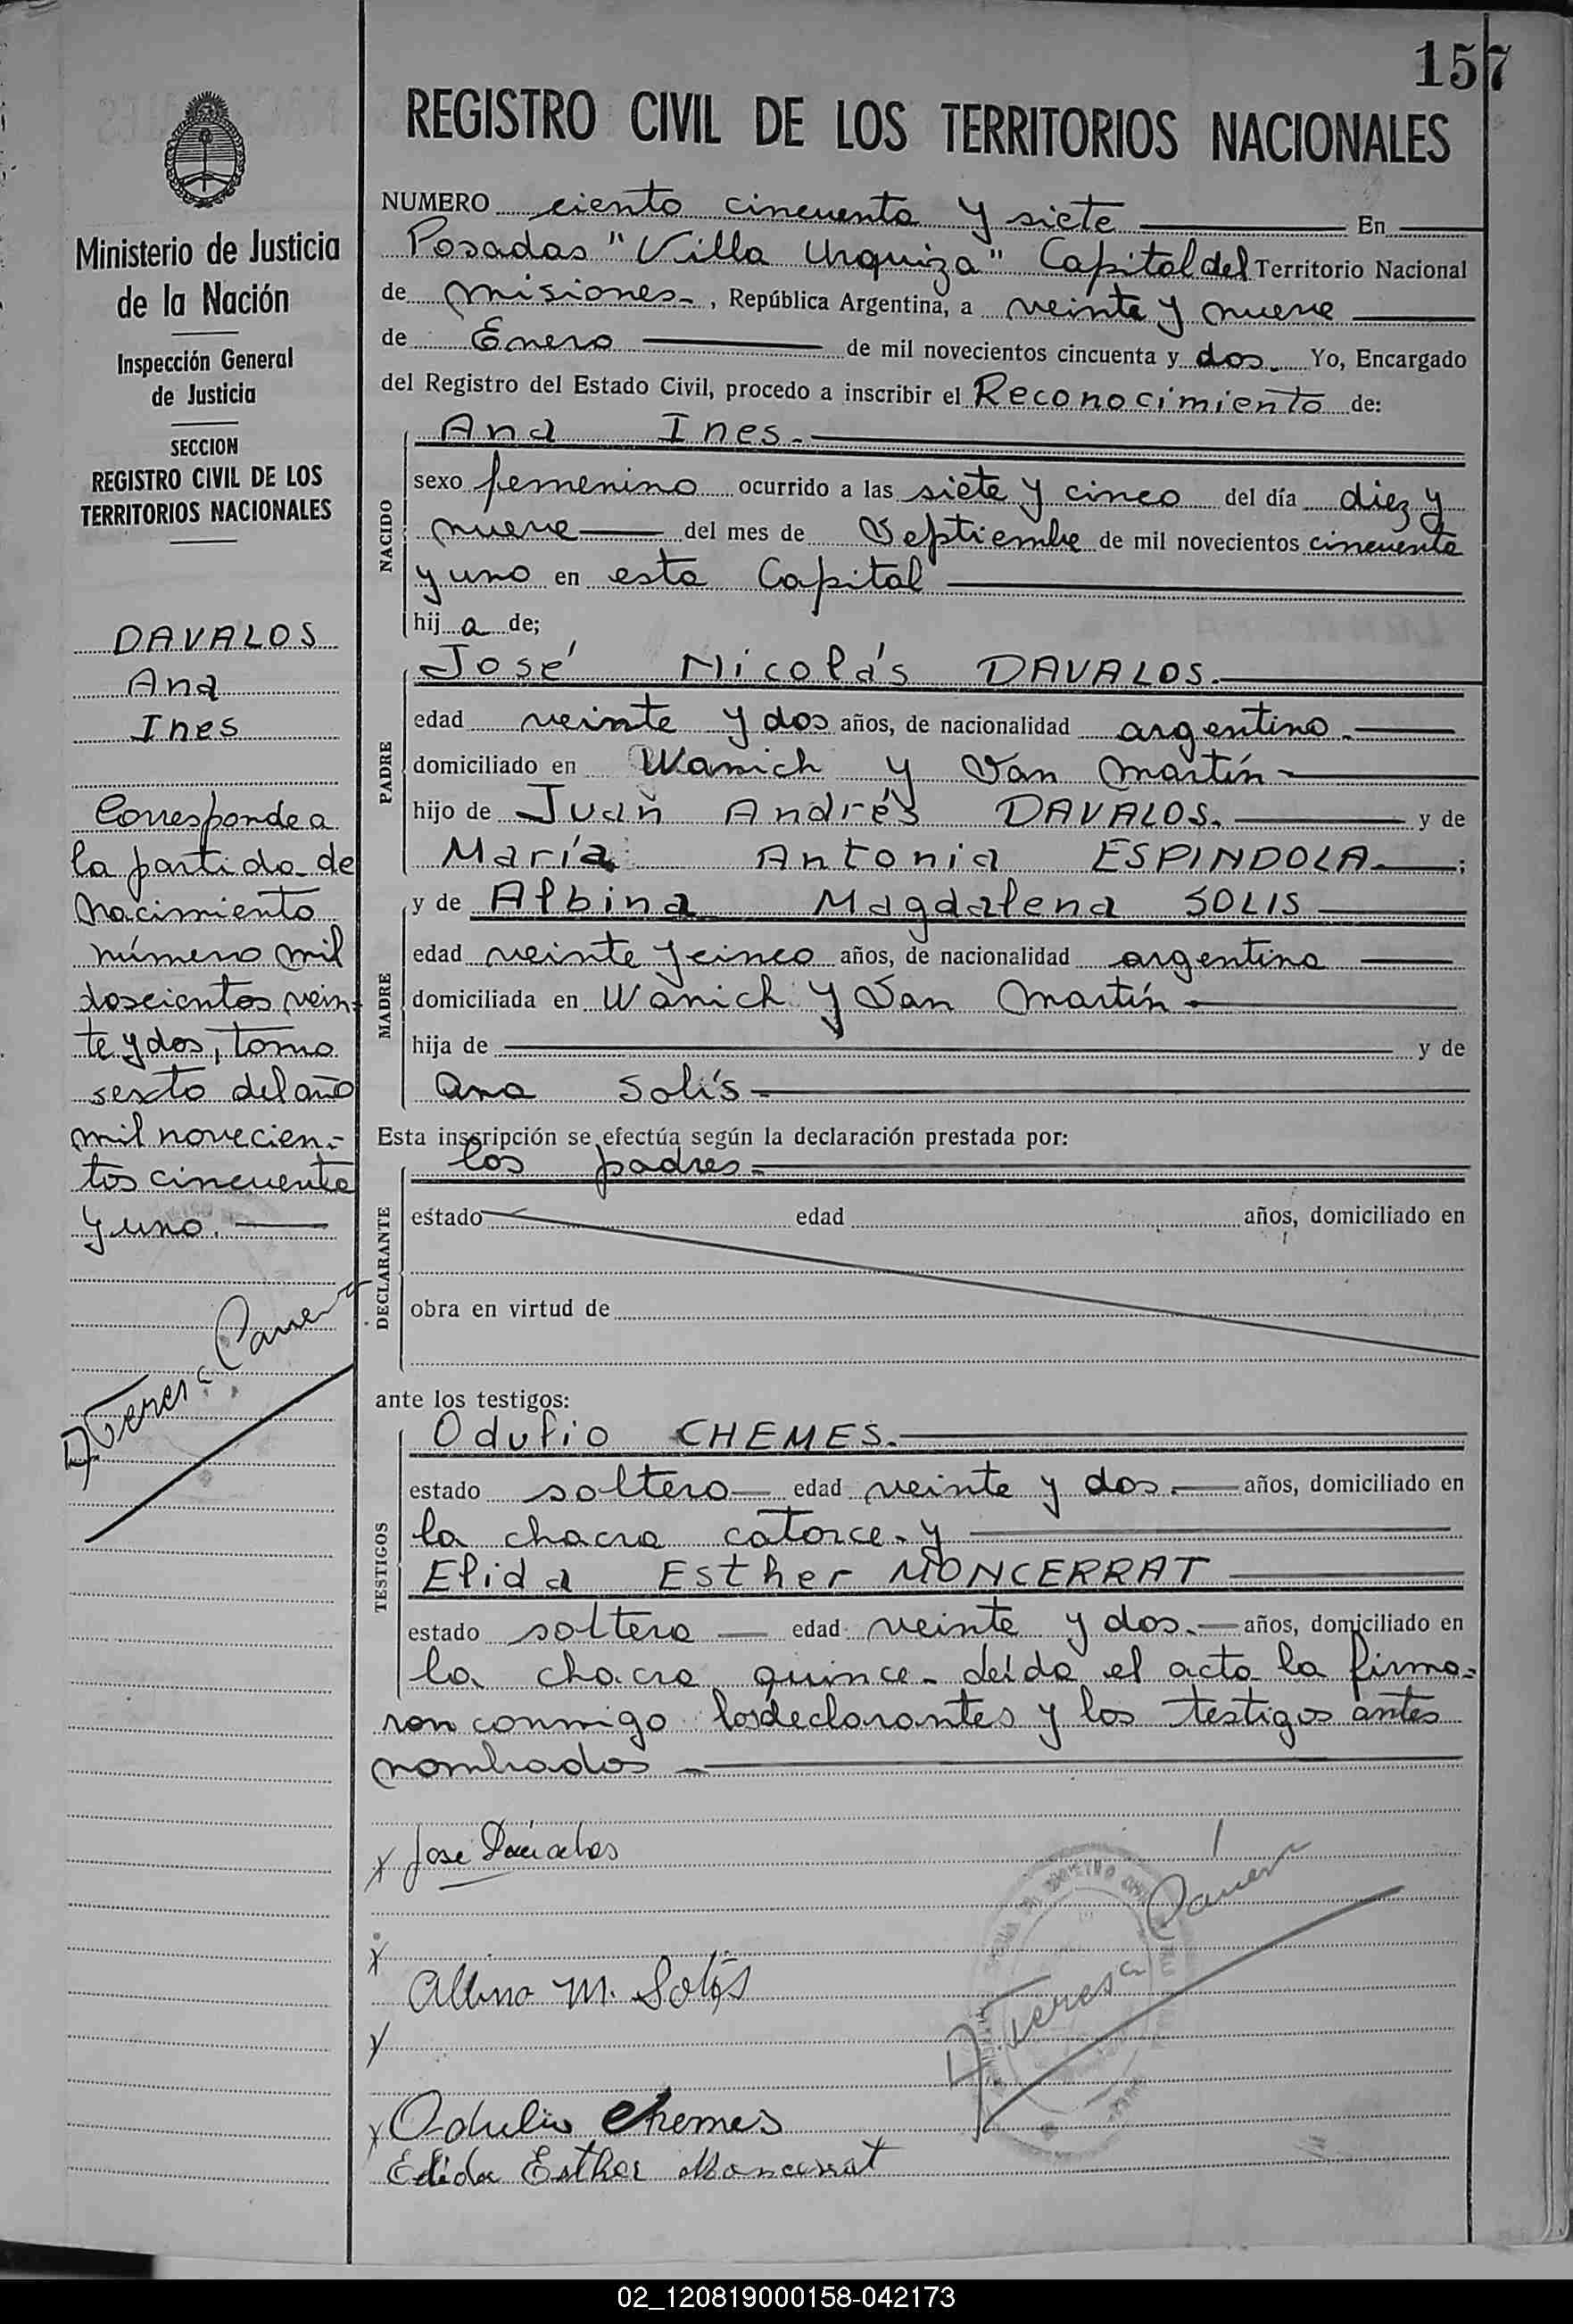 157
REGISTRO CIVIL DE LOS TERRITORIOS NACIONALES
Ministerio de Justicia
de la Nación
Inspección General
de Justicia
SECCION
REGISTRO CIVIL DE LOS
TERRITORIOS NACIONALES
DAVALOS
Ana
Ines
Corresponde a
la partida de
Nacimiento
número mil
doscientos vein-
te y dos, tomo
sexto del año
mil novecien-
tos cincuenta
y uno.
NUMERO ciento cincuenta y siete En
Posadas "Villa Urquiza" Capital del Territorio Nacional
de Misiones, República Argentina, a veinte y nueve
de Enero de mil novecientos cincuenta y dos. Yo, Encargado
del Registro del Estado Civil, procedo a inscribir el Reconocimiento de:
NACIDO
Ana Ines.
sexo femenino ocurrido a las siete y cinco del día diez y
nueve del mes de Septiembre de mil novecientos cincuenta
y uno en esta Capital
hij a de;
PADRE
José Nicolás DAVALOS.
edad veinte y dos años, de nacionalidad argentino.
domiciliado en Wanich y San Martín
hijo de Juan Andrés DAVALOS. y de
María Antonia ESPINDOLA ;
MADRE
y de Albina Magdalena SOLIS
edad veinte y cinco años, de nacionalidad argentina
domiciliada en Wanich y San Martín
hija de y de
Ana Solís
Esta inscripción se efectúa según la declaración prestada por:
los padres
DECLARANTE
estado edad años, domiciliado en
obra en virtud de
ante los testigos:
TESTIGOS
Odulio CHEMES.
estado soltero edad veinte y dos años, domiciliado en
la chacra catorce y
Elida Esther MONCERRAT
estado soltera edad veinte y dos. años, domiciliado en
la chacra quince. Leída el acta la firma-
ron conmigo los declarantes y los testigos antes
nombrados
José Dávalos
Albina M. Solís
Odulio Chemes
Elida Esther Moncerrat
02_120819000158-042173